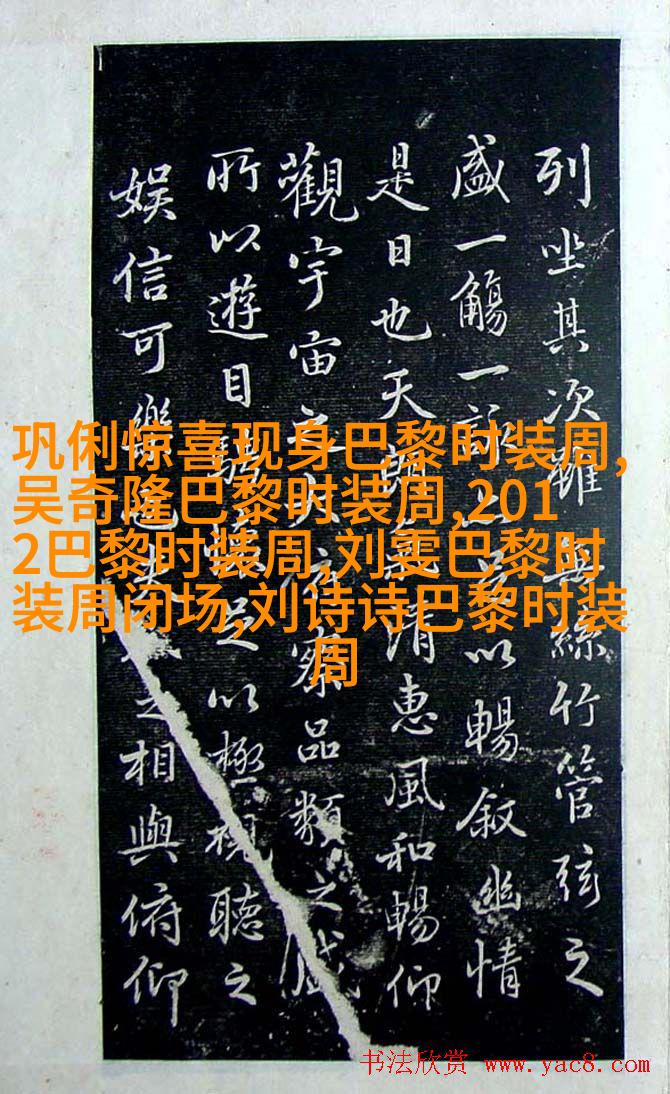 列坐其次雖無絲竹管弦之
盛一觴一詠以暢叙幽情
是日也天朗清惠風和暢仰
觀宇宙大俯察品類之盛
所以遊目騁懷足以極視聽之
娛信可樂也夫之相與俯仰
巩俐惊喜现身巴黎时装周,
吴奇隆巴黎时装周,201
2巴黎时装周,刘雯巴黎时
装周闭场,刘诗诗巴黎时装
周
书法欣赏 www.yac8.com